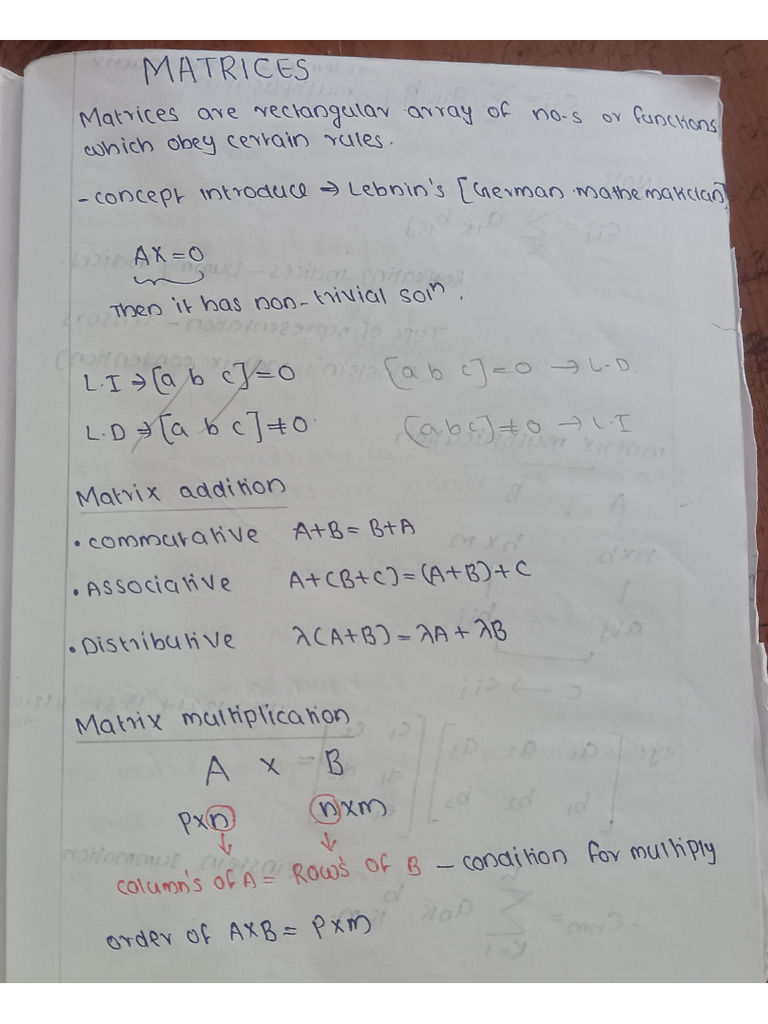 MATRICES
Matrices are rectangular array of no-s or functions
which obey certain rules.
- concept introduce → Lebnin's [German mathematician]
AX=0
Then it has non-trivial solⁿ.
L.I → [a b c]=0 [a b c]=0 → L.D.
L.D → [a b c]≠0. [abc]≠0 → L.I
Matrix addition
• commutative A+B = B+A
• Associative A+(B+C)=(A+B)+C
• Distributive λ(A+B)=λA+λB
Matrix multiplication
A x B
pxn nxm
↓ ↓
column's of A = Rows of B – condition for multiply
order of AXB = pxm